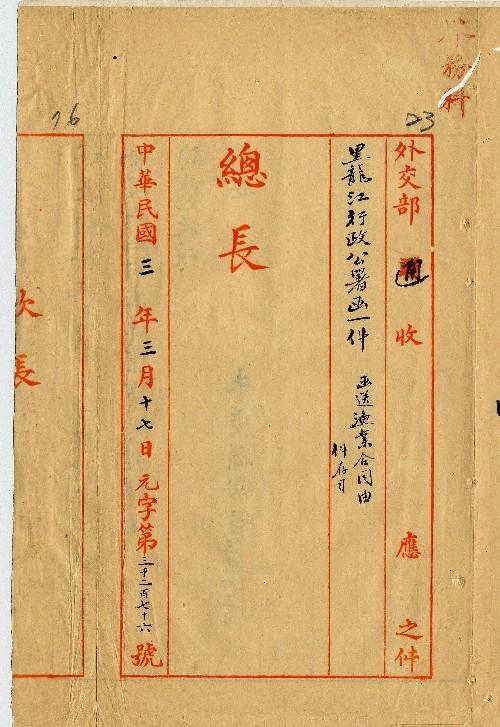 務科
23
外交部 通 收 應 之件
黑龍江行政公署函一件 函送漁業合同由
件存司
總長
中華民國三年三月十七日元字第三千二百七十六號
16
次長